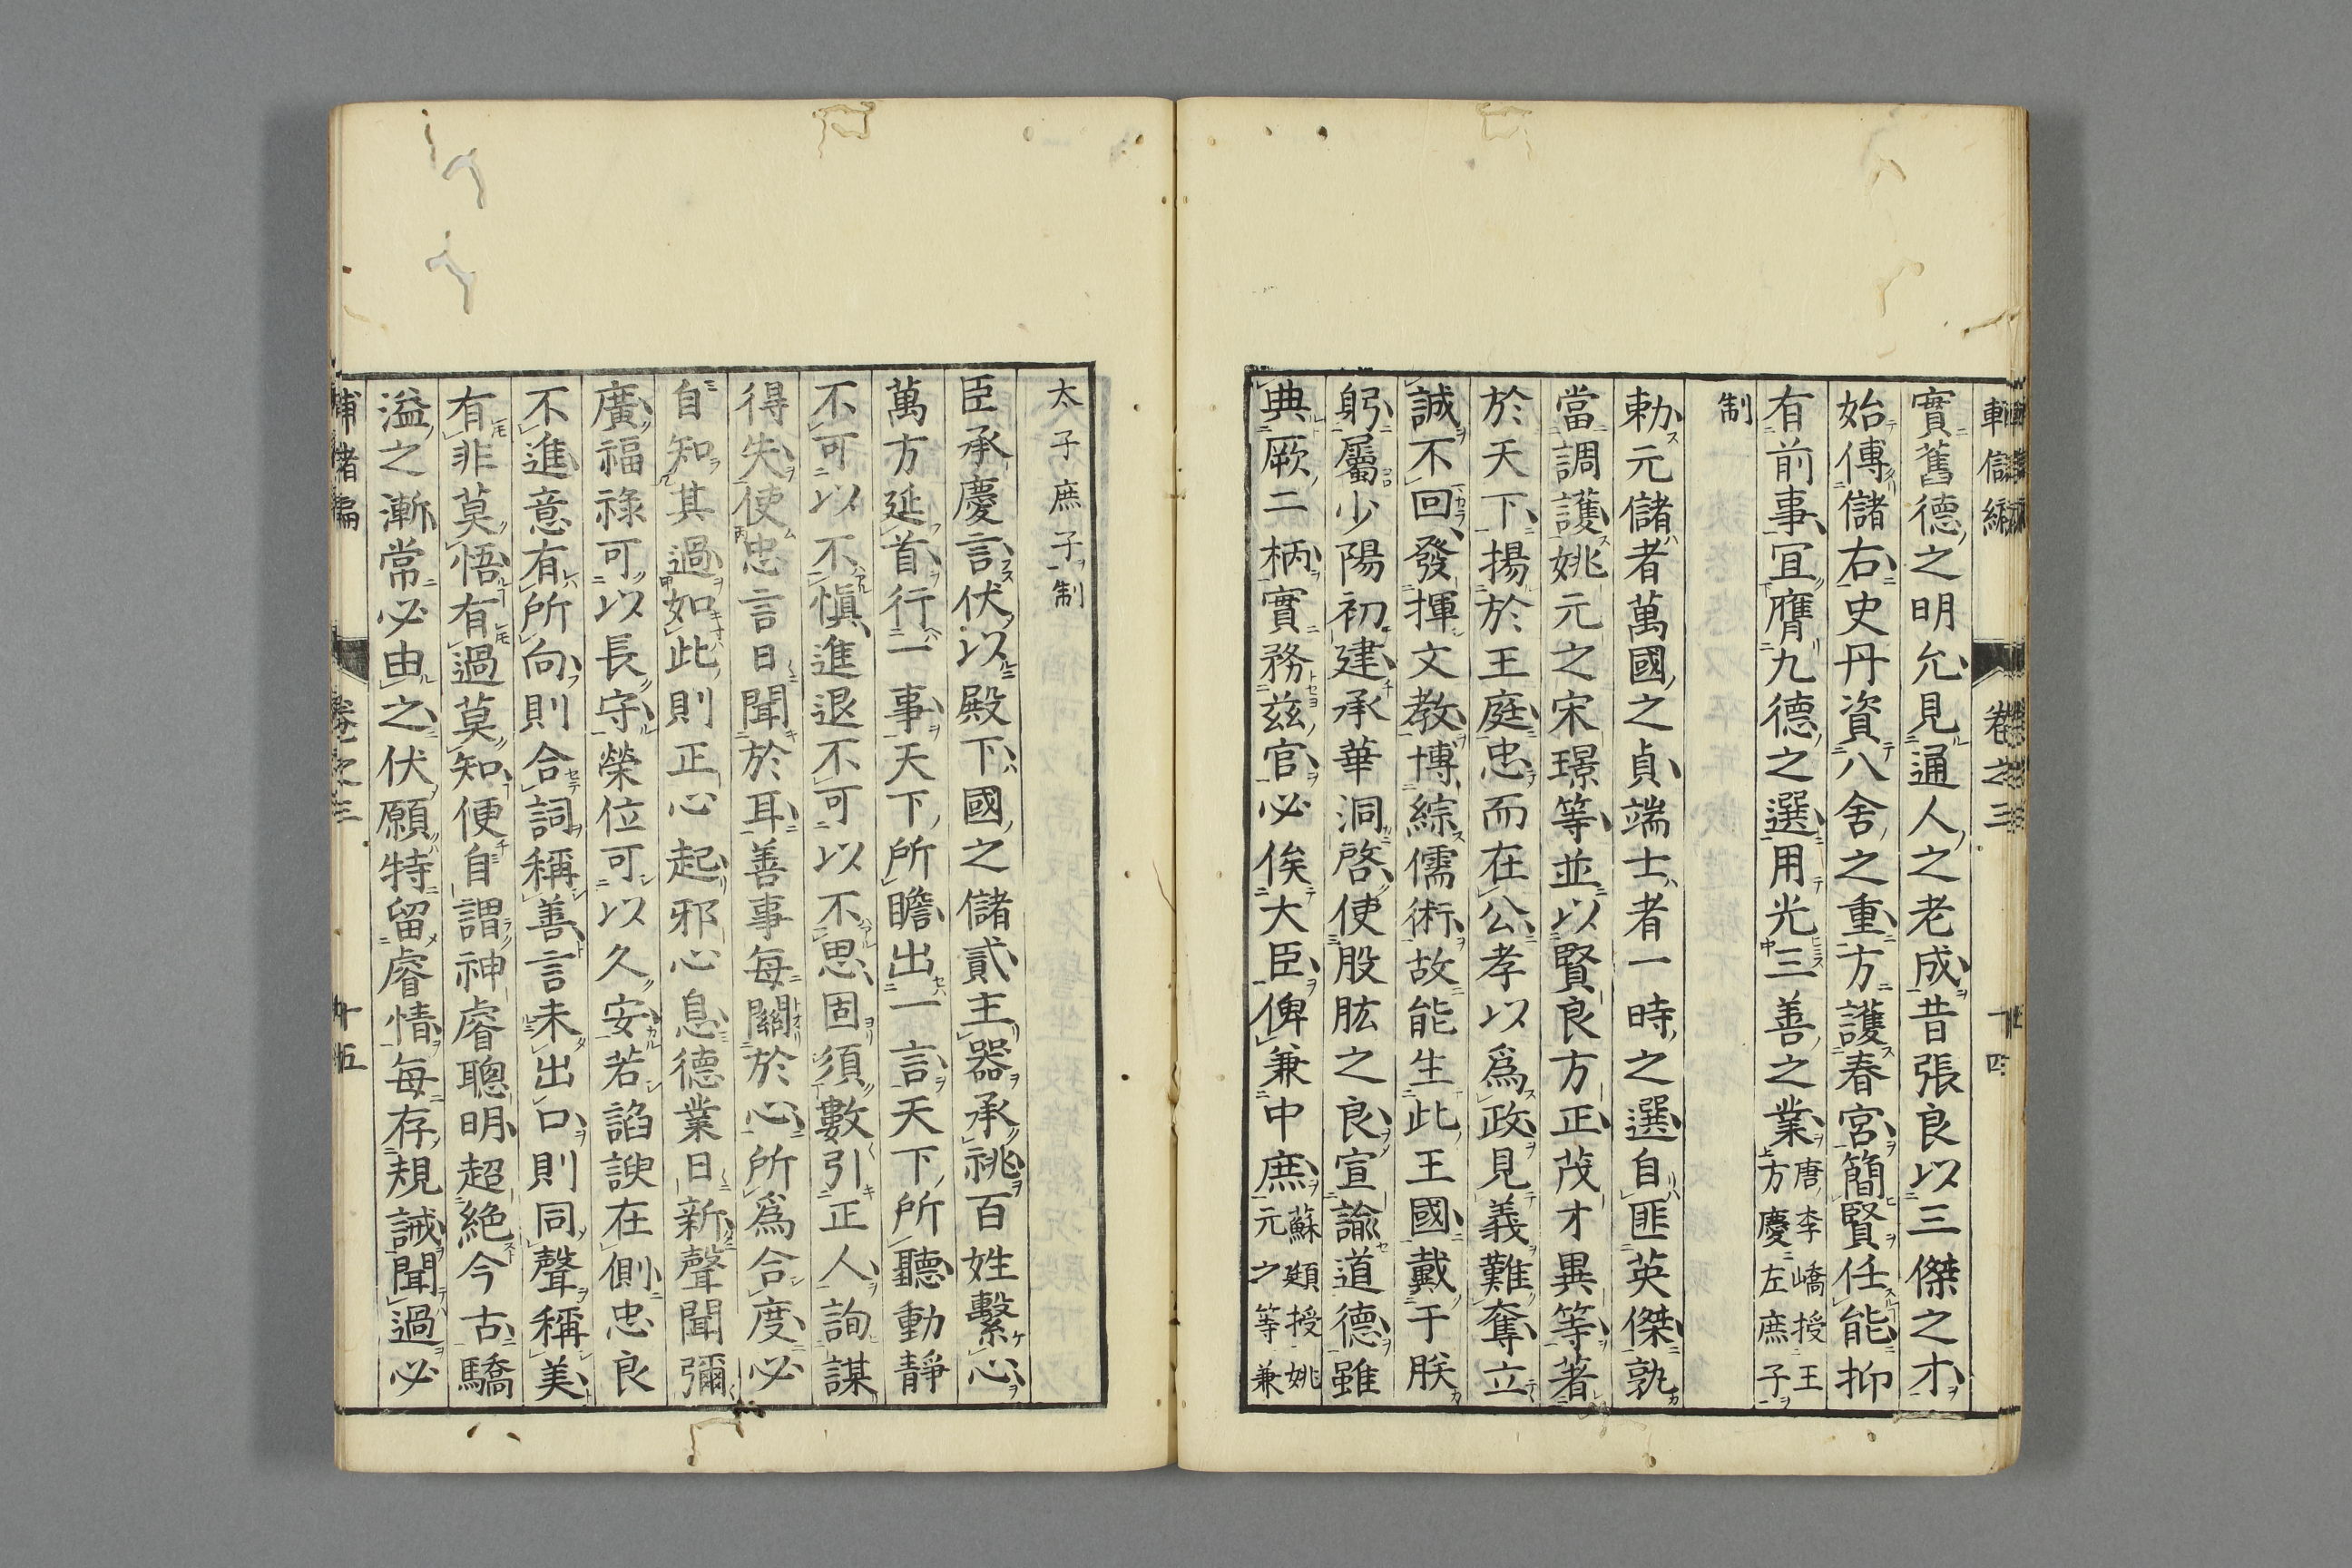 實舊德之明允見通人之老成昔張良以三傑之才
始傳儲右史丹資八舍之重方護春宮簡賢任能抑
有前事宜膺九德之選用光三善之業唐李嶠授王方慶左庶子
制
勅元儲者萬國之貞端士者一時之選自匪英傑孰
當調護姚元之宋璟等並以賢良方正茂才異等著
於天下揚於王庭忠而在公孝以爲政見義難奪立
誠不回發揮文教博綜儒術故能生此王國戴于朕
躬屬少陽初建承華洞啓使股肱之良宣諭道德雖
典厥二柄實務茲官必俟大臣俾兼中庶蘇頲授姚元之等兼
太子庶子制
臣承慶言伏以殿下國之儲貳主器承祧百姓繫心
萬方延首行一事天下所瞻出一言天下所聽動靜
不可以不愼進退不可以不思固須數引正人詢謀
得失使忠言日聞於耳善事每關於心所爲合度必
自知其過如此則正心起邪心息德業日新聲聞彌
廣福祿可以長守榮位可以久安若諂諛在側忠良
不進意有所向則合詞稱善言未出口則同聲稱美
有非莫悟有過莫知便自謂神睿聰明超絶今古驕
溢之漸常必由之伏願特留睿情每存規誡聞過必
卷之三